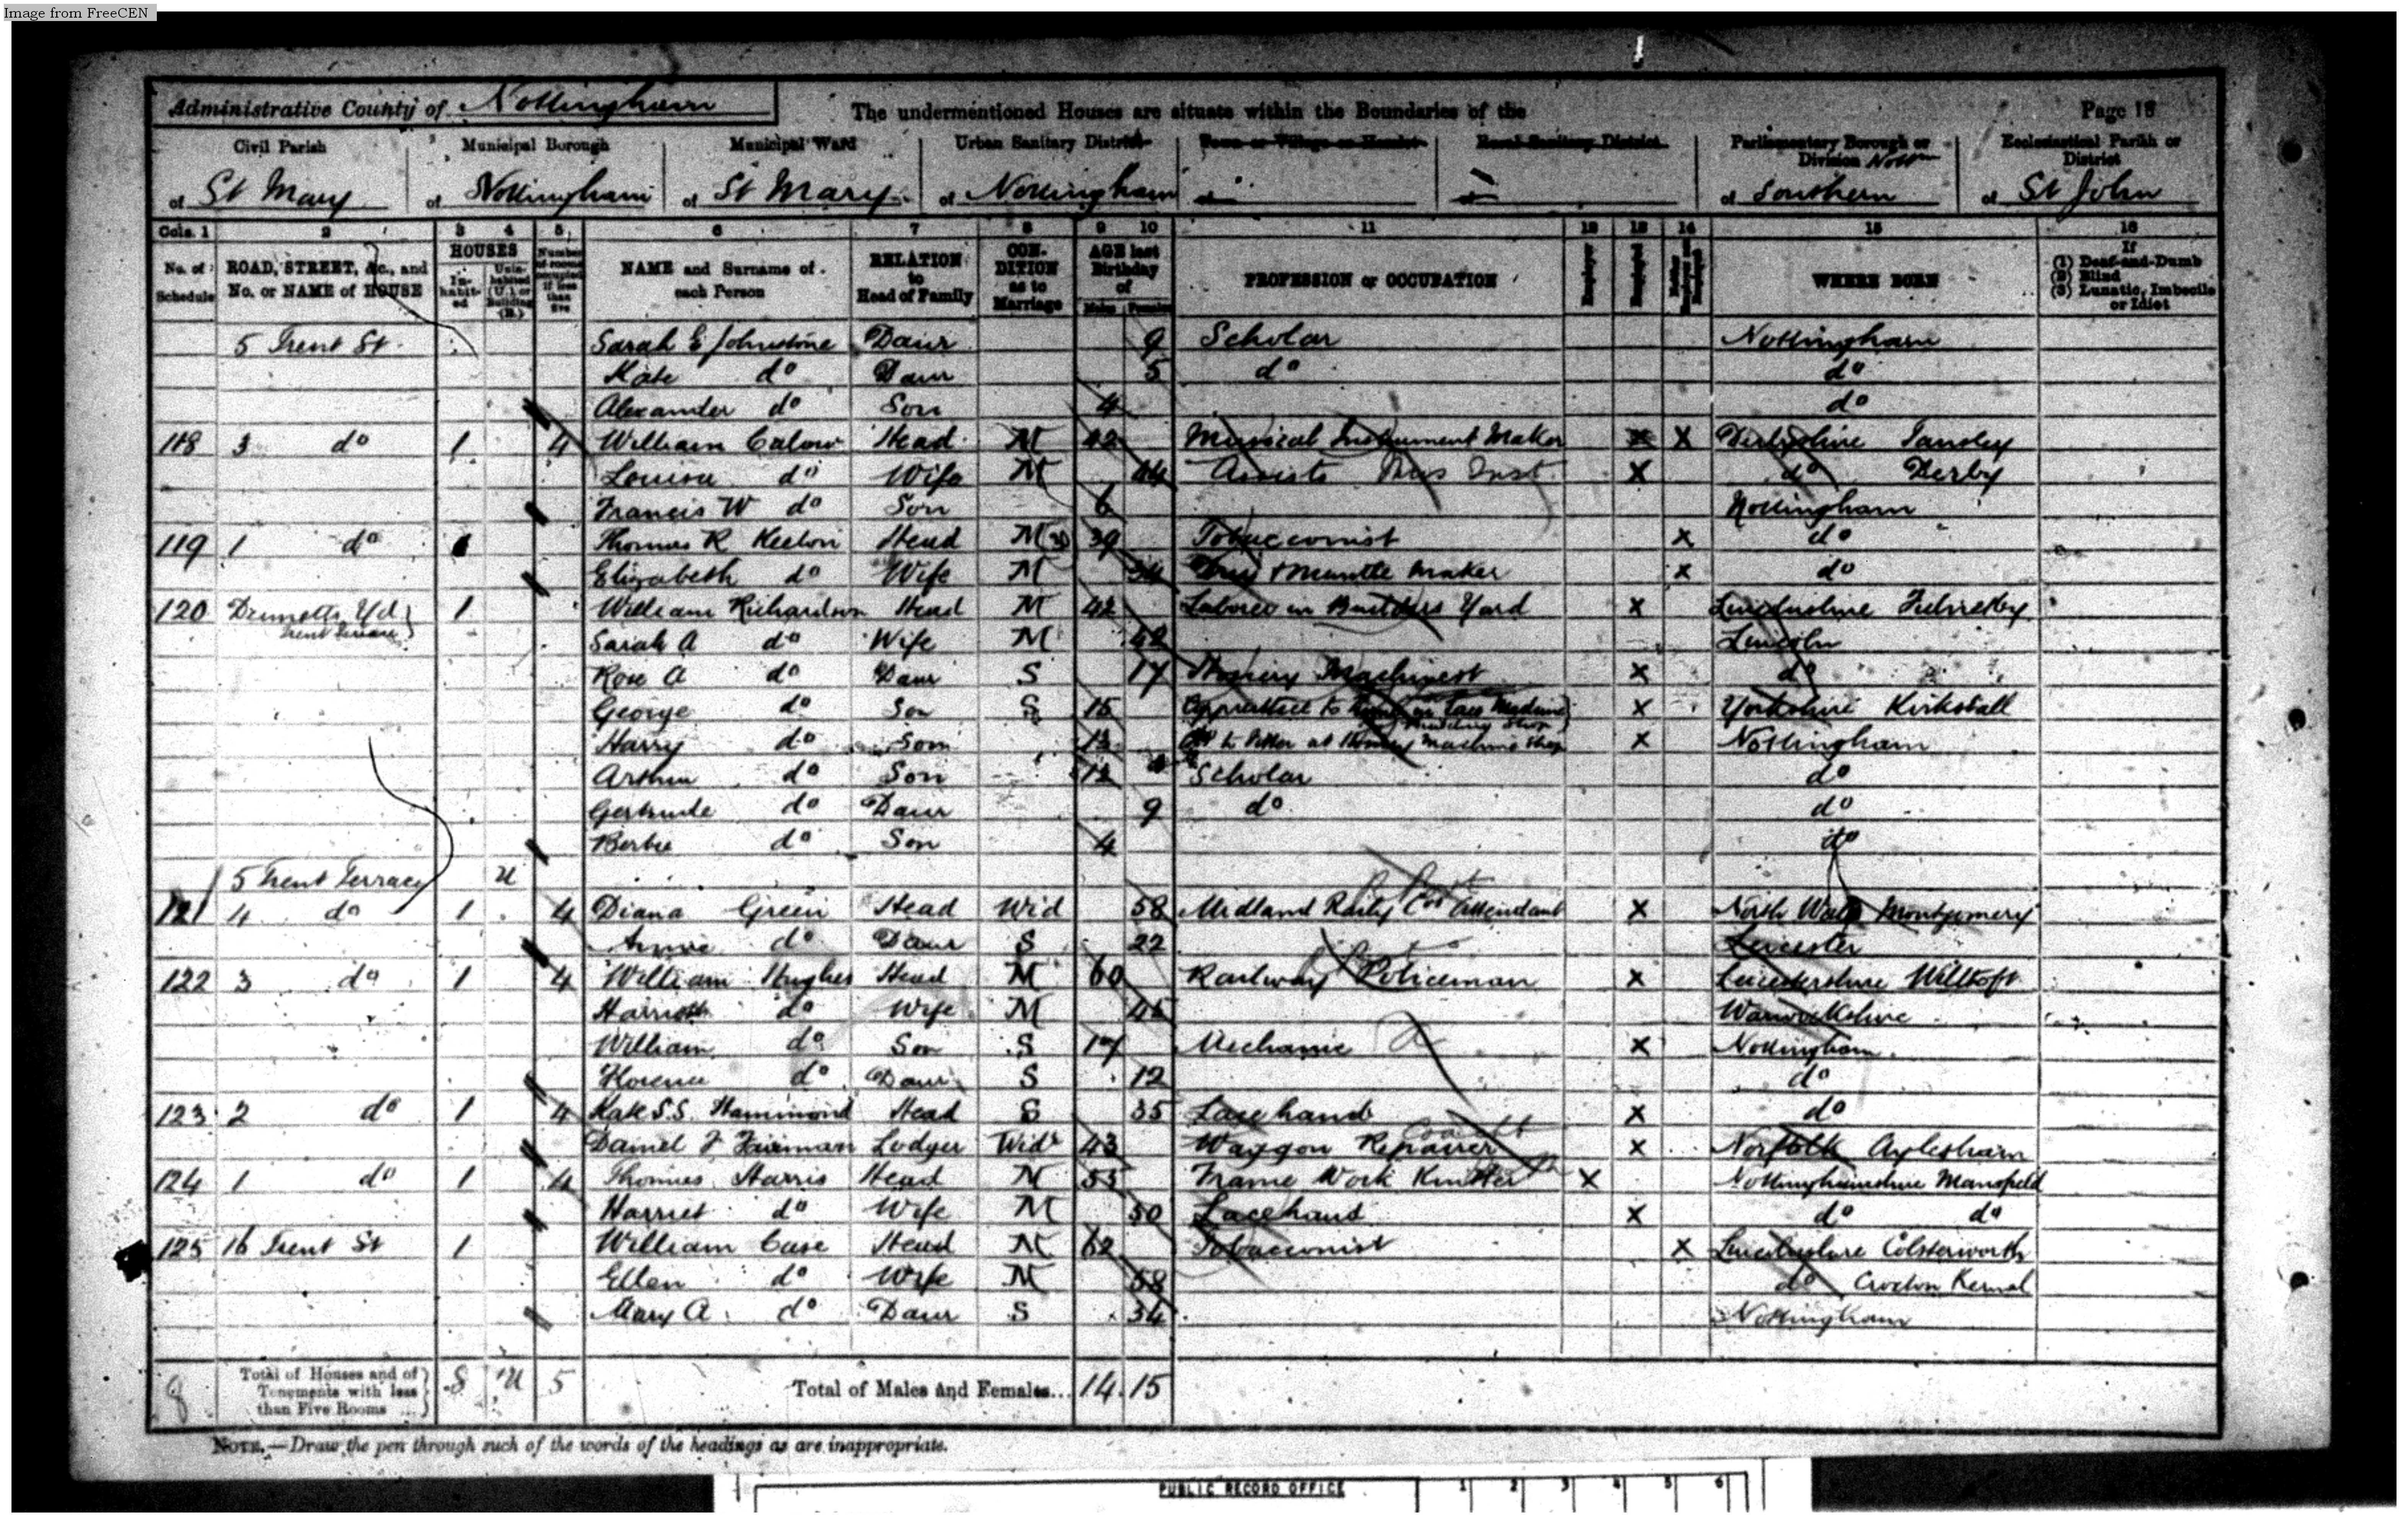 Image from FreeCEN
Administrative County of Nottingham The undermentioned Houses are situate within the Boundaries of the Page 18
Civil Parish Municipal Borough Municipal Ward Urban Sanitary District Town or Village or Hamlet Rural Sanitary District Parliamentary Borough or Division Nottm Ecclesiastical Parish or District
of St Mary of Nottingham of St Mary of Nottingham of of of Southern of St John
Cols. 1 2 3 4 5 6 7 8 9 10 11 12 13 14 15 16
No. of Schedule ROAD, STREET, &c., and No. or NAME of HOUSE HOUSES In-habit-ed Unin-habited (U.) or Building (B.) Number of rooms occupied if less than five NAME and Surname of each Person RELATION to Head of Family CON-DITION as to Marriage AGE last Birthday of Males Females PROFESSION or OCCUPATION Employer Employed Neither Employer nor Employed WHERE BORN If (1) Deaf-and-Dumb (2) Blind (3) Lunatic, Imbecile or Idiot
5 Trent St. Sarah E Johnstone Daur 9 Scholar Nottingham
Kate do Daur 5 do do
Alexander do Son 4 do
118 3 do 1 4 William Calow Head M 42 Musical Instrument Maker X X Derbyshire Tansley
Louisa do Wife M 44 Assists Mus Inst X do Derby
Francis W do Son 6 Nottingham
119 1 do 1 Thomas R Keeton Head M 39 Tobacconist X do
Elizabeth do Wife M 34 & Mantle Maker X do
120 Yd Trent Terrace 1 William Richardson Head M 42 Laborer in Builders Yard X Lincolnshire
Sarah A do Wife M 42 Lincoln
Rose A do Daur S 17 Hosiery Machinest X do
George do Son S 15 Apprentice to in Lace Machine Building Shop X Yorkshire Kirkstall
Harry do Son 13 to fitter at Hosiery Machine Shop X Nottingham
Arthur do Son 12 Scholar do
Gertrude do Daur 9 do do
Bertie do Son 4 do
5 Trent Terrace U
121 4 do 1 4 Diana Green Head Wid 58 Midland Raily Cos Attendant X North Wales Montgomery
Annie do Daur S 22 Leicester
122 3 do 1 4 William Hughes Head M 60 Railway Policeman X Leicestershire Willtoft
Harriett do Wife M 45 Warwickshire
William do Son S 17 Mechanic X Nottingham
Florence do Daur S 12 do
123 2 do 1 4 Kate S.S. Hammond Head S 35 Lace hand X do
Daniel F Lodger Widr 43 Waggon Repairer X Norfolk Aylesham
124 1 do 1 4 Thomas Harris Head M 53 Frame Work Knitter X Nottinghamshire Mansfield
Harriet do Wife M 50 Lacehand X do do
125 16 Trent St 1 William Case Head M 62 Tobacconist X Lincolnshire Colsterworth
Ellen do Wife M 58 do Croxton Kernal
Mary A do Daur S 34 Nottingham
8 Total of Houses and of Tenements with less than Five Rooms ... 8 1U 5 Total of Males and Females... 14 15
NOTE.—Draw the pen through such of the words of the headings as are inappropriate.
PUBLIC RECORD OFFICE 1 2 3 4 5 6